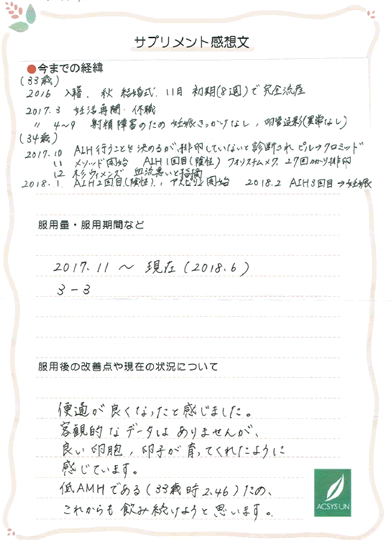 サプリメント感想文
●今までの経緯
(33歳)
2016 入籍、秋 結婚式、11月 初期(8週)で完全流産
2017.3 妊活再開・休職
〃 4~9 射精障害のため妊娠きっかけなし、卵管造影(異常なし)
(34歳)
2017.10 AIH行うことを決めるが排卵していないと診断され
11 メソッド開始 AIH1回目(陰性)
12 血流悪いと指摘
2018.1 AIH2回目(陰性)、アスピリン開始 2018.2 AIH3回目→妊娠
服用量・服用期間など
2017.11 ~ 現在(2018.6)
3-3
服用後の改善点や現在の状況について
便通が良くなったと感じました。
客観的なデータはありませんが、
良い卵胞、卵子が育ってくれたように
感じています。
低AMHである(33歳時2.46)ため、
これからも飲み続けようと思います。
ACSYSUN